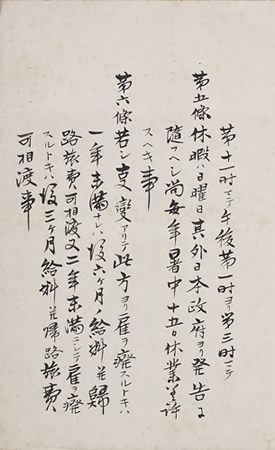 第十一时マテ午後第一时ヨリ第三时マテ
第五條休暇ハ日曜日其外日本政府ヨリ発告ニ
随フヘシ尚毎年暑中十五日休業ヲ許
スヘキ事
第六條若シ支變アリテ此方ヨリ雇ヲ癈スルトキハ
一年未満ナレハ後六ケ月ノ給料並歸
路旅費可相渡又二年未満ニシテ雇ヲ癈
スルトキハ後三ケ月給料並歸路旅費
可相渡事